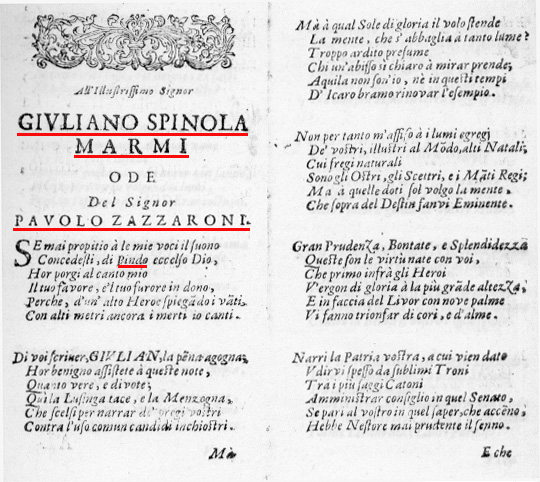 All'Illustrissimo Signor
GIVLIANO SPINOLA
MARMI
ODE
Del Signor
PAVOLO ZAZZARONI.
SE mai propitio à le mie voci il suono
Concedesti, di Pindo eccelso Dio,
Hor porgi al canto mio
Il tuo favore, e'l tuo furore in dono,
Perche, d'un' alto Heroe spiegādo i vāti
Con alti metri ancora i merti io canti.
Di voi scriver, GIVLIAN, la pēna agogna;
Hor benigno assistete à queste note,
Quanto vere, e divote;
Quì la Lusinga tace, e la Menzogna,
Che scelsi per narrar de' pregi vostri
Contra l'uso comun candidi inchiostri.
Mà
Mà à qual Sole di gloria il volo stende
La mente, che s'abbaglia à tanto lume?
Troppo ardito presume
Chi un'abisso sì chiaro à mirar prende;
Aquila non son'io, nè in questi tempi
D' Icaro bramo rinovar l'esempio.
Non per tanto m'affiso à i lumi egregi
De' vostri, illustri al Mōdo, alti Natali;
Cui fregi naturali
Sono gli Ostri, gli Scettri, e i Māti Regi;
Mà à quelle doti sol volgo la mente,
Che sopra del Destin fanvi Eminente.
Gran Prudenza, Bontate, e Splendidezza
Queste son le virtù nate con voi,
Che primo infrà gli Heroi
V'ergon di gloria à la più grāde altezza,
E in faccia del Livor con nove palme
Vi fanno trionfar di cori, e d'alme.
Narri la Patria vostra, a cui vien dato
Vdirvi spesso da sublimi Troni
Tra i più saggi Catoni
Amministrar consiglio in quel Senato,
Se pari al vostro in quel saper, che accēno,
Hebbe Nestore mai prudente il senno.
E che